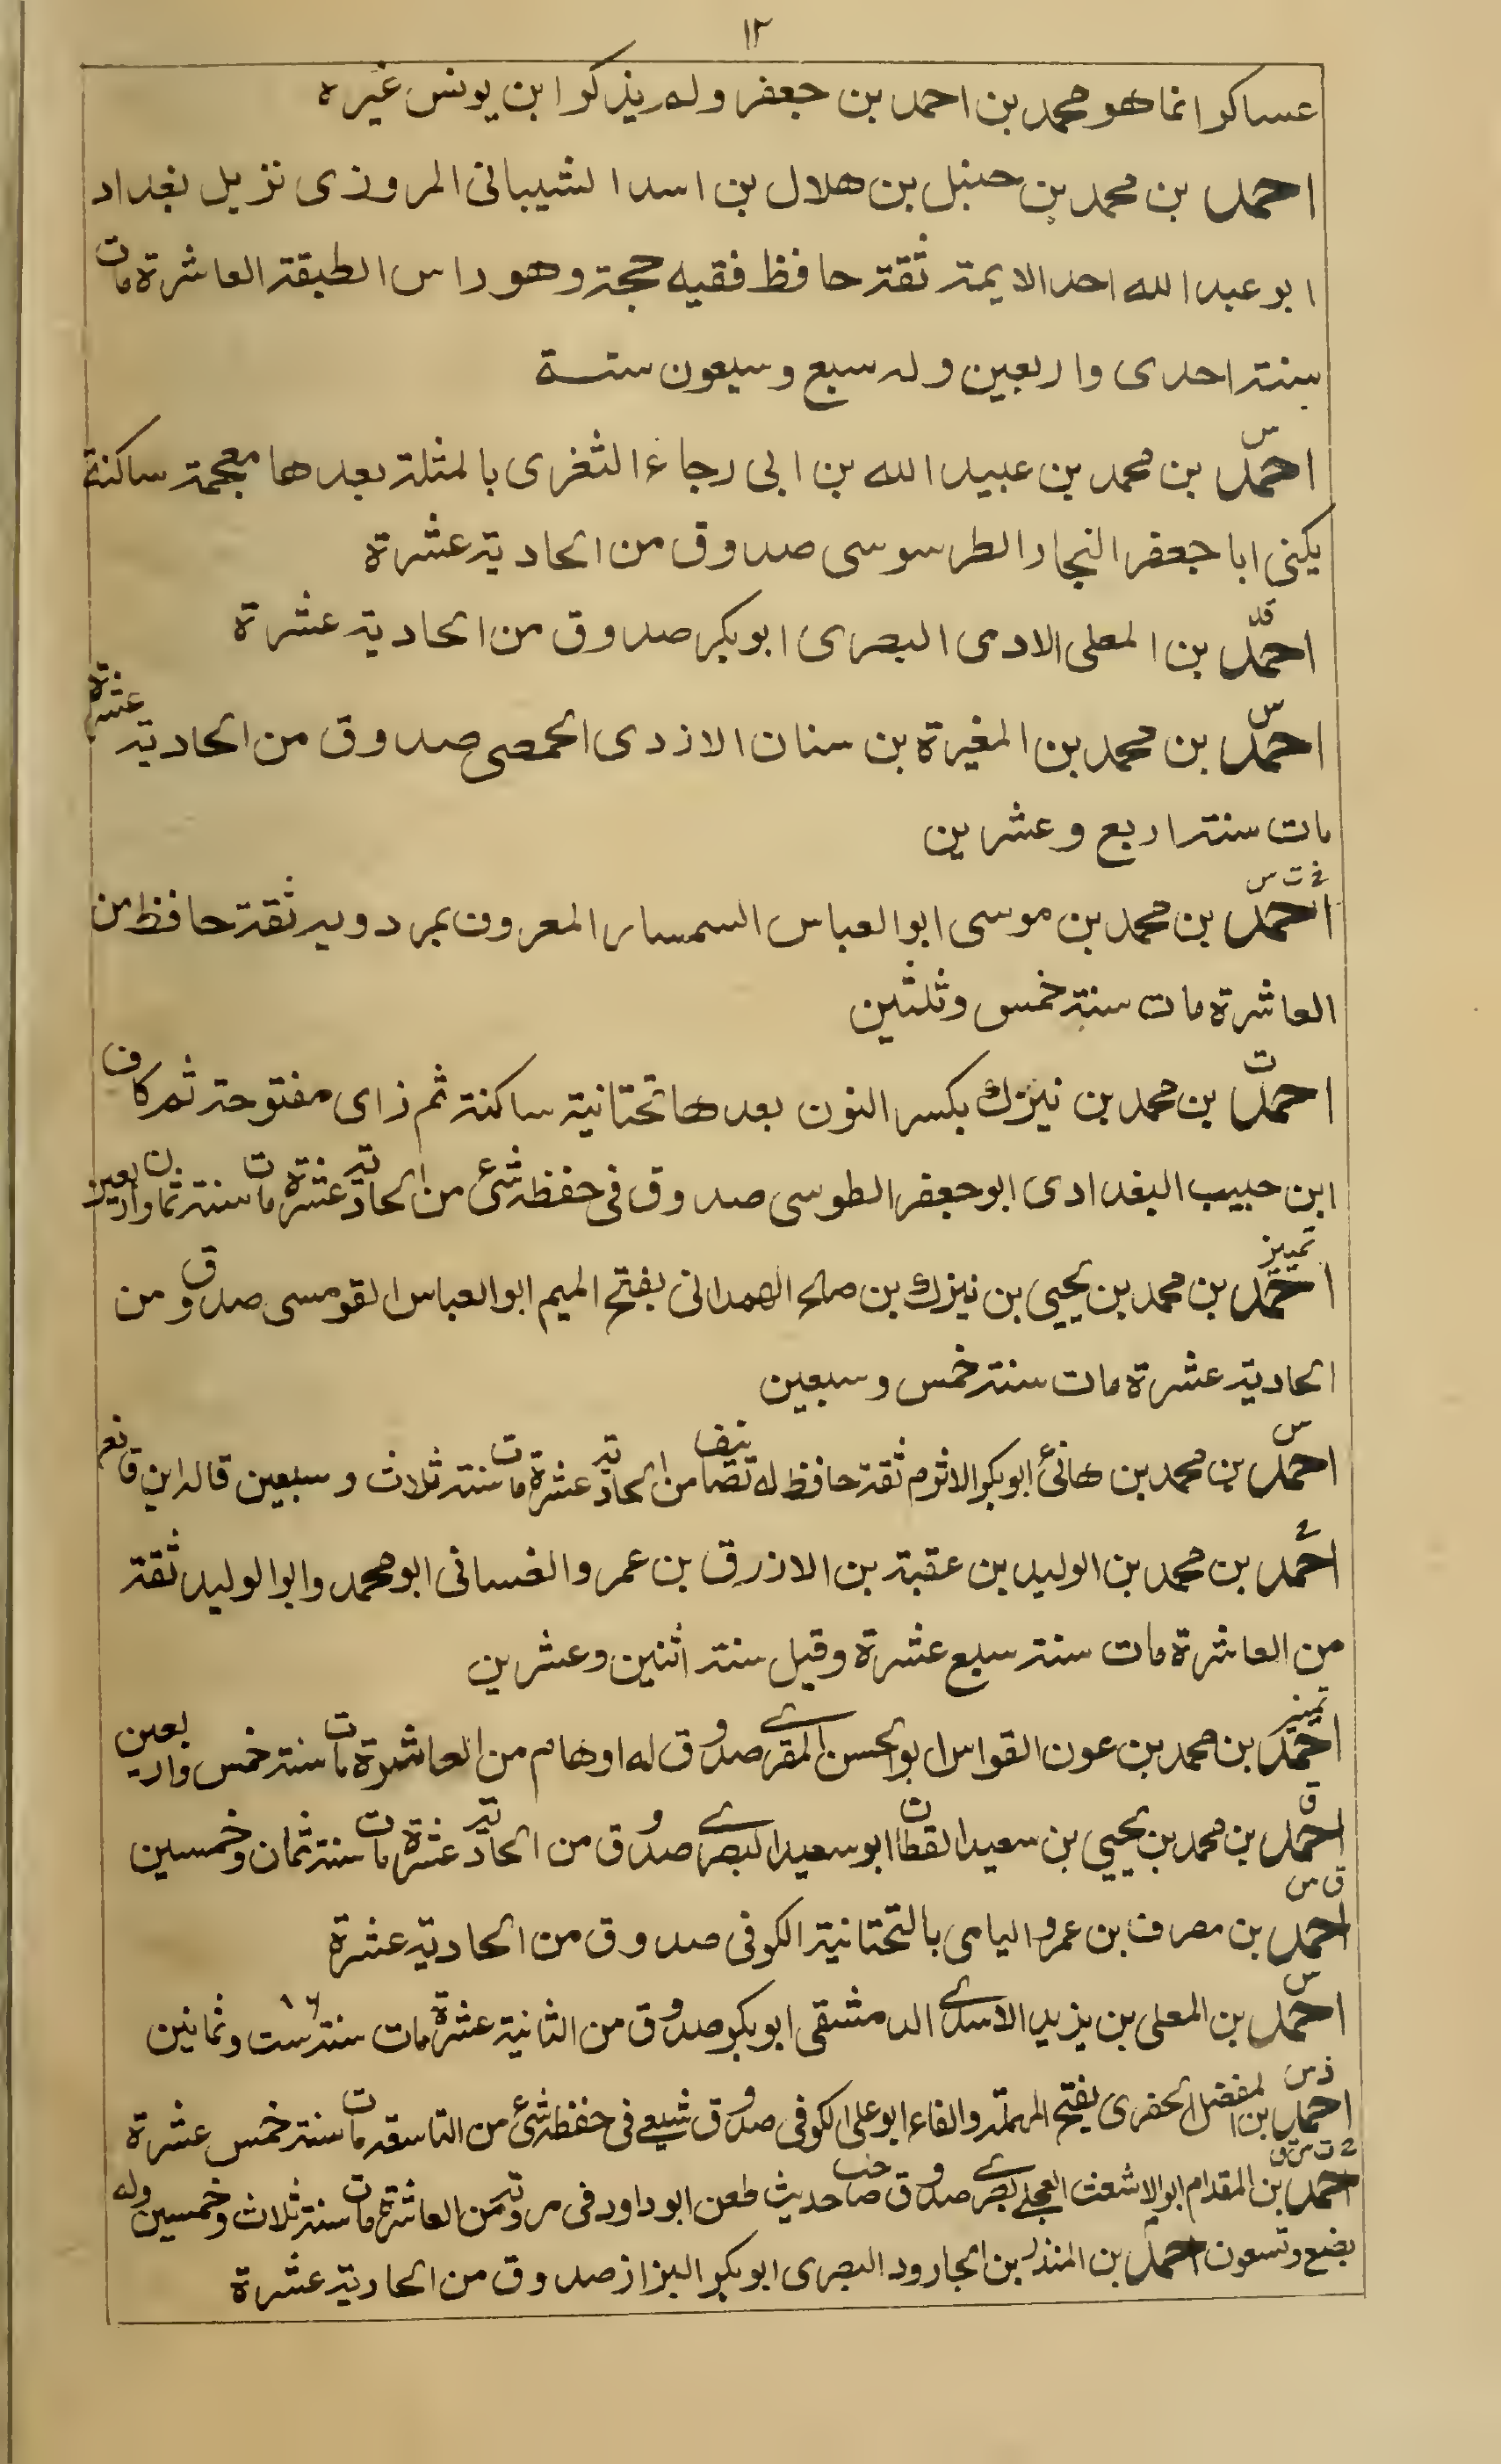 ١٢
عساكر انما هو محمد بن احمد بن جعفر ولم يذكر ابن يونس غيره
احمد بن محمد بن حنبل بن هلال بن اسد الشيبانى المروزى نزيل بغداد
ابو عبد الله احد الايمة ثقة حافظ فقيه حجة وهو راس الطبقة العاشرة مات
سنة احدى واربعين وله سبع وسبعون سنة
س
احمد بن محمد بن عبيد الله بن ابى رجاء الثغرى بالمثلثة بعدها معجمة ساكنة
يكنى ابا جعفر النجار الطرسوسى صدوق من الحادية عشرة
احمد بن المعلى الادمى البصرى ابوبكر صدوق من الحادية عشرة
س
احمد بن محمد بن المغيرة بن سنان الازدى الحمصى صدوق من الحادية عشرة
مات سنة اربع وعشرين
خ ت س
احمد بن محمد بن موسى ابو العباس السمسار المعروف بمردويه ثقة حافظ من
العاشرة مات سنة خمس وثلثين
ت
احمد بن محمد بن نيزك بكسر النون بعدها تحتانية ساكنة ثم زاى مفتوحة ثم كاف
ابن حبيب البغدادى ابو جعفر الطوسى صدوق فى حفظه شئ من الحادية عشرة مات سنة ثمان واربعين
تمييز
احمد بن محمد بن يحيى بن نيزك بن صالح الهمدانى بفتح الميم ابو العباس القومسى صدوق من
الحادية عشرة مات سنة خمس وسبعين
س
احمد بن محمد بن هانئ ابوبكر الاثرم ثقة حافظ له تصانيف من الحادية عشرة مات سنة ثلاث وسبعين قاله ابن قانع
خ
احمد بن محمد بن الوليد بن عقبة بن الازرق بن عمرو الغسانى ابو محمد وابو الوليد ثقة
من العاشرة مات سنة سبع عشرة وقيل سنة اثنين وعشرين
تمييز
احمد بن محمد بن عون القواس ابو الحسن المقرى صدوق له اوهام من العاشرة مات سنة خمس واربعين
ق
احمد بن محمد بن يحيى بن سعيد القطان ابو سعيد البصرى صدوق من الحادية عشرة مات سنة ثمان وخمسين
ق س
احمد بن مصرف بن عمرو اليامى بالتحتانية الكوفى صدوق من الحادية عشرة
س
احمد بن المعلى بن يزيد الاسدى الدمشقى ابوبكر صدوق من الثانية عشرة مات سنة ست وثمانين
د س
احمد بن المفضل الحفرى بفتح المهملة والفاء ابو على الكوفى صدوق شيعى فى حفظه شئ من التاسعة مات سنة خمس عشرة
خ ت س ق
احمد بن المقدام ابو الاشعث العجلى بصرى صدوق صاحب حديث طعن ابو داود فى مروته من العاشرة مات سنة ثلاث وخمسين وله
بضع وتسعون احمد بن المنذر بن الجارود البصرى ابوبكر البزاز صدوق من الحادية عشرة